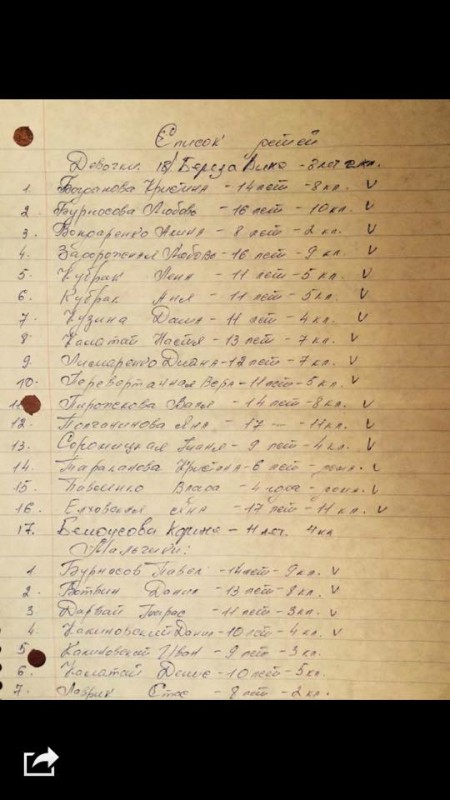 Список детей
Девочки: 18) Береза Вика - 8 лет 2 кл.
1. Богданова Кристина - 14 лет - 8 кл. V
2. Бурносова Любовь - 16 лет - 10 кл. V
3. Бондаренко Алина - 8 лет - 2 кл. V
4. Задорожная Любовь - 16 лет - 9 кл. V
5. Кубрак Лена - 11 лет - 5 кл. V
6. Кубрак Аня - 11 лет - 5 кл. V
7. Кузина Даша - 11 лет - 4 кл. V
8. Каматай Настя - 13 лет - 7 кл. V
9. Писаренко Диана - 12 лет - 7 кл. V
10. Перевертанная Вера - 11 лет - 5 кл. V
11. Пирожкова Валя - 14 лет - 8 кл. V
12. Яна - 17 - 11 кл. V
13. - 9 лет - 4 кл. V
14. Тараканова Кристина - 6 лет - V
15. Павленко Влада - 4 года - V
16. Елховская - 17 лет - 11 кл. V
17. Белоусова Карина - 11 лет. 4 кл
Мальчики:
1. Бурносов Павел - 14 лет - 9 кл. V
2. Вотвин Данил - 13 лет - 8 кл. V
3 Тарас - 11 лет - 3 кл. V
4. Калиновский Данил - 10 лет - 4 кл. V
5. Калиновский Иван - 9 лет - 3 кл.
6. Каматай Денис - 10 лет - 5 кл.
7. Лаврик Стас - 8 лет - 2 кл.